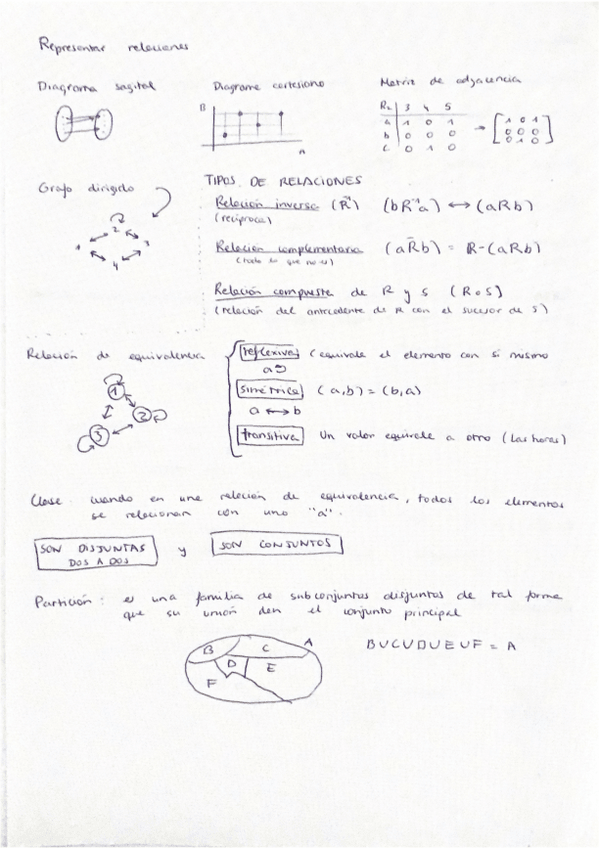 Representar relaciones
Diagrama sagital
Diagrama cartesiano
B
A
Matriz de adjacencia
R₂ 3 4 5
a 1 0 1
b 0 0 0
c 0 1 0
→ [1 0 1
0 0 0
0 1 0]
Grafo dirigido
1 2 3 4
TIPOS DE RELACIONES
Relación inversa (R⁻¹) (bR⁻¹a) ↔ (aRb)
(recíproca)
Relación complementaria (aR̄b) = R-(aRb)
(todo lo que no es)
Relación compuesta de R y S (R∘S)
(relación del antecedente de R con el sucesor de S)
Relación de equivalencia
1
2
3
reflexiva (equivale el elemento con si mismo
a
simétrica (a,b) = (b,a)
a ↔ b
transitiva Un valor equivale a otro (Las horas)
Clase: cuando en una relación de equivalencia, todos los elementos
se relacionan con uno "a".
SON DISJUNTAS
DOS A DOS
y
SON CONJUNTOS
Partición: es una familia de subconjuntos disjuntos de tal forma
que su unión den el conjunto principal
B C A
D E
F
B∪C∪D∪E∪F = A